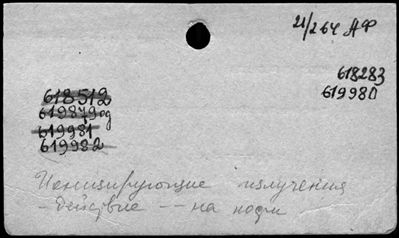 21/264 АФ
618283
619980
618512
619879 од
619981
619982
Ионизирующие излучения
- действие -- на